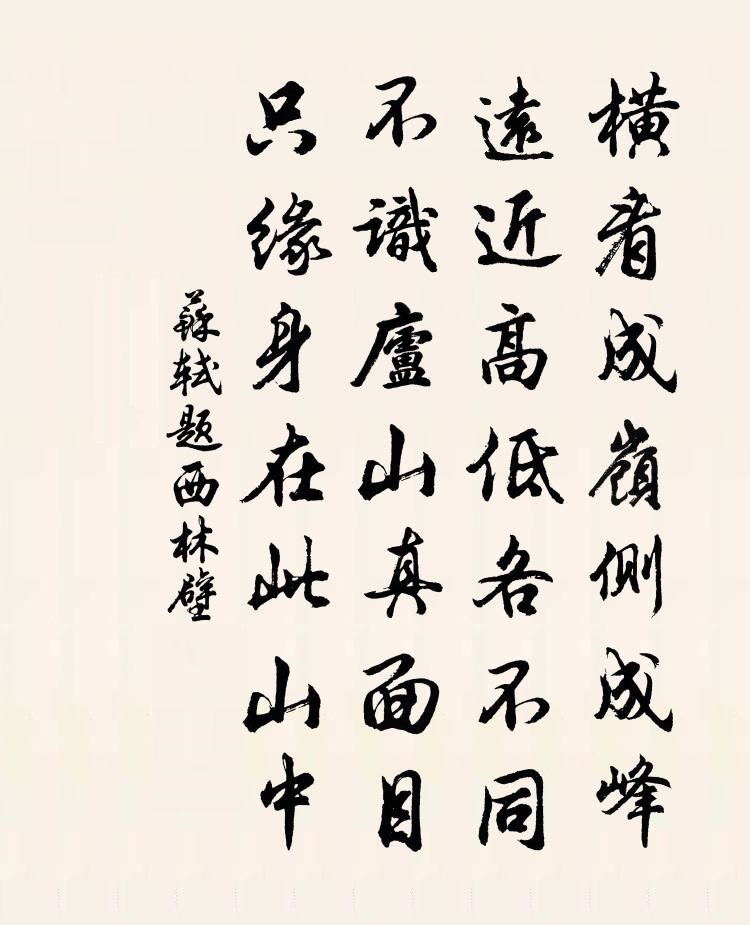 橫看成嶺側成峰
遠近高低各不同
不識廬山真面目
只緣身在此山中
蘇軾題西林壁